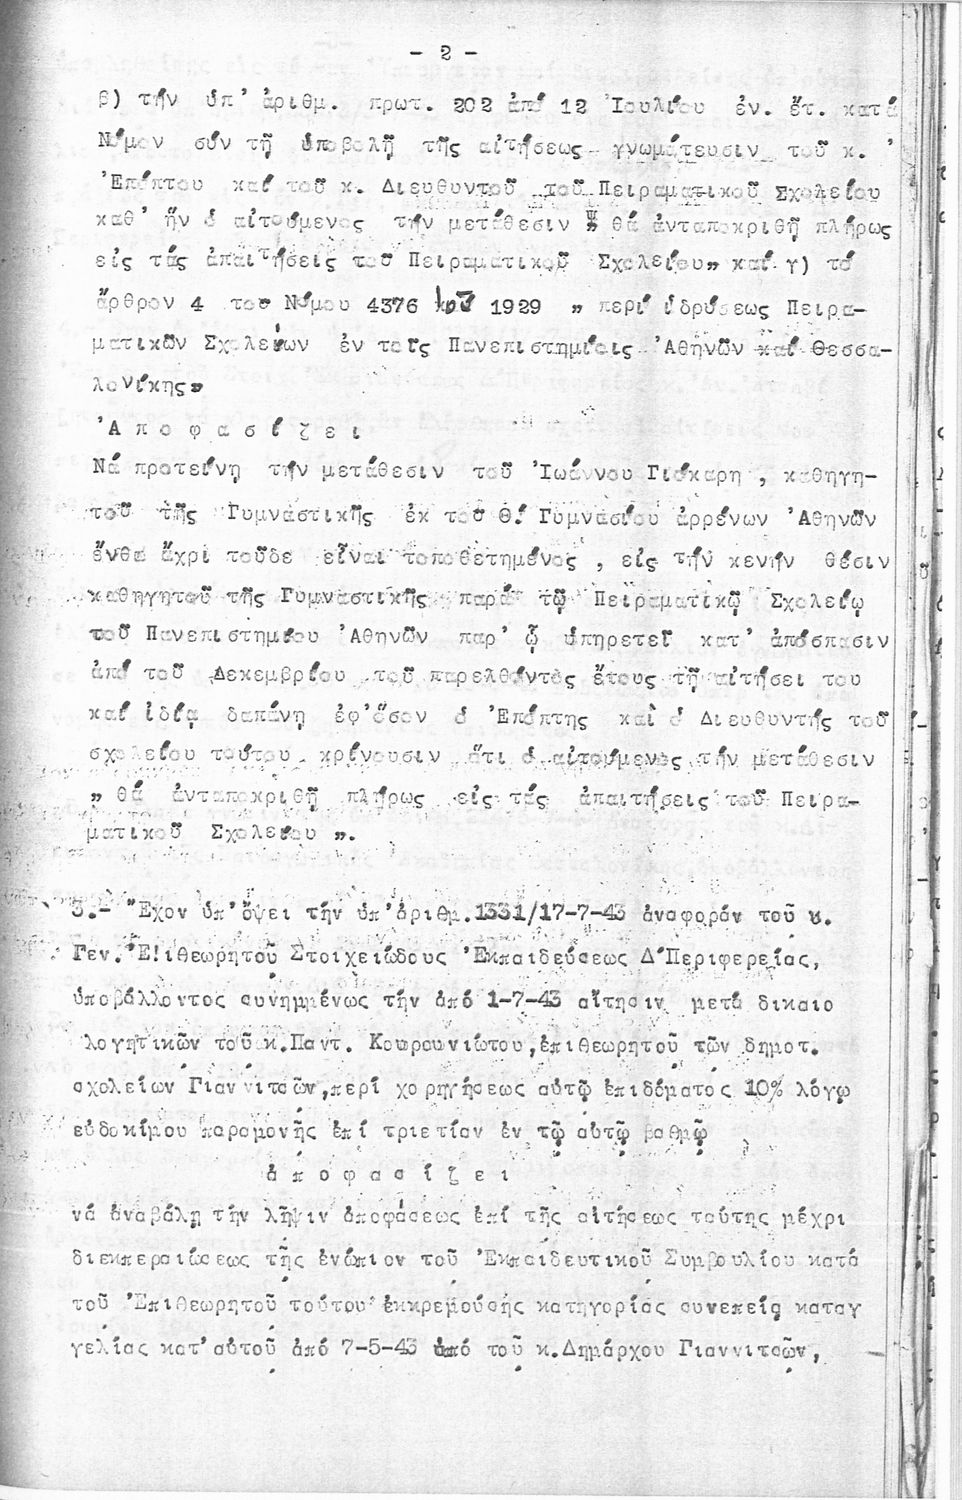 - 2 -
β) τήν ὑπ' ἀριθμ. πρωτ. 202 ἀπό 12 Ἰουλίου ἐν. ἔτ. κατά
Νόμον σύν τῇ ὑποβολῇ τῆς αἰτήσεως γνωμάτευσιν τοῦ κ.
Ἐπόπτου καί τοῦ κ. Διευθυντοῦ τοῦ Πειραματικοῦ Σχολείου
καθ' ἥν ὁ αἰτούμενος τήν μετάθεσιν " θά ἀνταποκριθῇ πλήρως
εἰς τάς ἀπαιτήσεις τοῦ Πειραματικοῦ Σχολείου" καί γ) τό
ἄρθρον 4 τοῦ Νόμου 4376 τοῦ 1929 " περί ἱδρύσεως Πειρα-
ματικῶν Σχολείων ἐν τοῖς Πανεπιστημίοις Ἀθηνῶν καί Θεσσα-
λονίκης"
Ἀ π ο φ α σ ί ζ ε ι
Νά προτείνῃ τήν μετάθεσιν τοῦ Ἰωάννου Γισκαρη , καθηγη-
τοῦ τῆς Γυμναστικῆς ἐκ τοῦ Θ! Γυμνασίου ἀρρένων Ἀθηνῶν
ἔνθα ἄχρι τοῦδε εἶναι τοποθετημένος , εἰς τήν κενήν θέσιν
καθηγητοῦ τῆς Γυμναστικῆς παρά τῷ Πειραματικῷ Σχολείῳ
τοῦ Πανεπιστημίου Ἀθηνῶν παρ' ᾧ ὑπηρετεῖ κατ' ἀπόσπασιν
ἀπό τοῦ Δεκεμβρίου τοῦ παρελθόντος ἔτους τῇ αἰτήσει του
καί ἰδίᾳ δαπάνῃ ἐφ'ὅσον ὁ Ἐπόπτης καὶ ὁ Διευθυντής τοῦ
σχολείου τούτου κρίνουσιν ὅτι ὁ αἰτούμενος τήν μετάθεσιν
" θά ἀνταποκριθῇ πλήρως εἰς τάς ἀπαιτήσεις τοῦ Πειρα-
ματικοῦ Σχολείου ".
3.- Ἔχον ὑπ'ὄψει τήν ὑπ'ἀριθμ.1331/17-7-43 ἀναφοράν τοῦ κ.
Γεν. Ἐ!ιθεωρητοῦ Στοιχειώδους Ἐκπαιδεύσεως Δ'Περιφερείας,
ὑποβάλλοντος συνημμένως τήν ἀπό 1-7-43 αἴτησιν μετά δικαιο
λογητικῶν τοῦ κ.Παντ. Κουρουνιώτου,ἐπιθεωρητοῦ τῶν δημοτ.
σχολείων Γιαννιτσῶν,περί χορηγήσεως αὐτῷ ἐπιδόματος 10% λόγῳ
εὐδοκίμου παραμονῆς ἐπί τριετίαν ἐν τῷ αὐτῷ βαθμῷ
ἀ π ο φ α σ ί ζ ε ι
νά ἀναβάλῃ τήν λῆψιν ἀποφάσεως ἐπί τῆς αἰτήσεως ταύτης μέχρι
διεκπεραιώσεως τῆς ἐνώπιον τοῦ Ἐκπαιδευτικοῦ Συμβουλίου κατά
τοῦ Ἐπιθεωρητοῦ τούτου ἐκκρεμούσης κατηγορίας συνεπείᾳ καταγ
γελίας κατ'αὐτοῦ ἀπό 7-5-43 ὑπό τοῦ κ.Δημάρχου Γιαννιτσῶν,